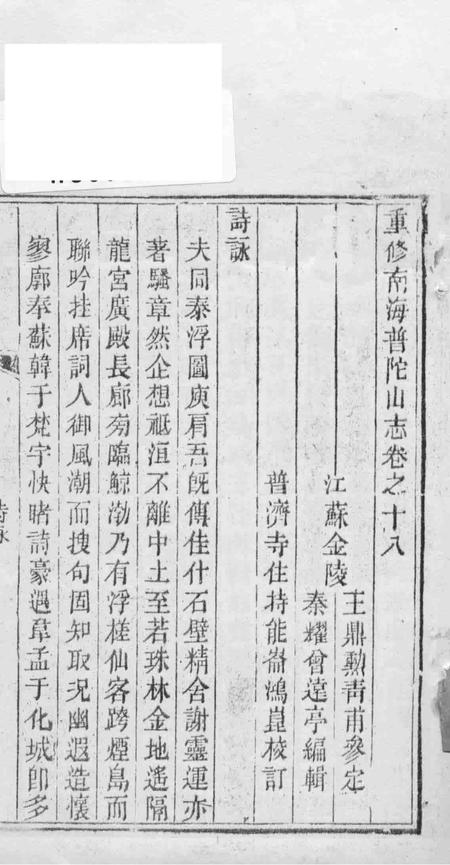 重修南海普陀山志卷之十八
江蘇金陵
王鼎勲靑甫參定
秦耀曾遠亭編輯
普濟寺住持能崙鴻崑校訂
詩詠
夫同泰浮圖庾肩吾旣傳佳什石壁精舍謝靈運亦
著騷章然企想祗洹不離中土至若珠林金地遙隔
龍宮廣殿長廊菊臨鯨渤乃有浮槎仙客跨煙島而
聯吟挂席詞人御風潮而搜句固知取況幽遐造懷
寥廓奉蘇韓于梵宇快睹詩豪遇韋孟于化城卽多
詩詠